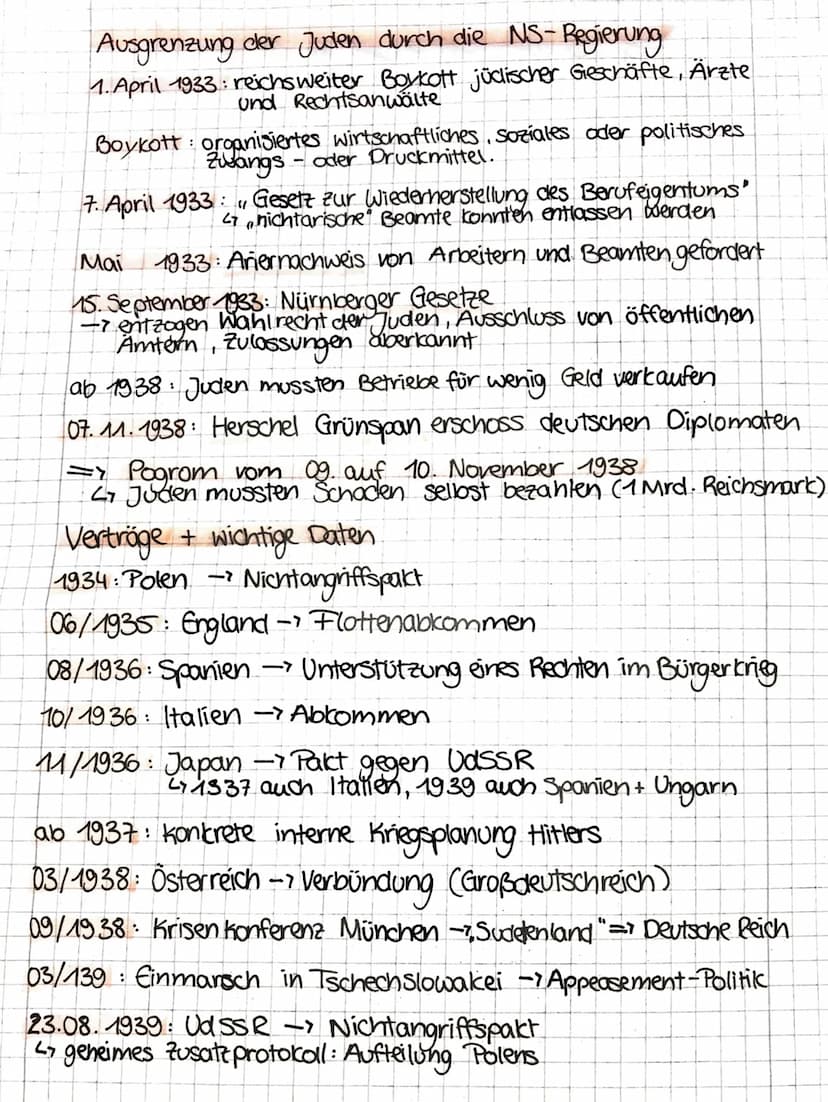 Ausgrenzung der Juden durch die NS-Regierung
1. April 1933: reichsweiter Boykott jüdischer Geschäfte, Ärzte
und Rechtsanwälte
Boykott: organisiertes wirtschaftliches, soziales oder politisches
Zwangs- oder Druckmittel.
7. April 1933: „Gesetz zur Wiederherstellung des Berufeigentums"
↳ „nichtarische" Beamte konnten entlassen werden
Mai 1933: Ariernachweis von Arbeitern und Beamten gefordert
15. September 1933: Nürnberger Gesetze
→ entzogen Wahlrecht der Juden, Ausschluss von öffentlichen
Ämtern, Zulassungen aberkannt
ab 1938: Juden mussten Betriebe für wenig Geld verkaufen
07.11.1938: Herschel Grünspan erschoss deutschen Diplomaten
=> Pogrom vom 09. auf 10. November 1938
↳ Juden mussten Schaden selbst bezahlen (1 Mrd. Reichsmark)
Verträge + wichtige Daten
1934: Polen → Nichtangriffspakt
06/1935: England → Flottenabkommen
08/1936: Spanien → Unterstützung eines Rechten im Bürgerkrieg
10/1936: Italien → Abkommen
11/1936: Japan → Pakt gegen UdSSR
↳ 1337 auch Italien, 1939 auch Spanien + Ungarn
ab 1937: konkrete interne Kriegsplanung Hitlers
03/1938: Österreich → Verbündung (Großdeutschreich)
09/1938: Krisenkonferenz München → „Suddenland" => Deutsche Reich
03/139: Einmarsch in Tschechslowakei → Appeasement-Politik
23.08.1939: UdSSR → Nichtangriffspakt
↳ geheimes Zusatzprotokoll: Aufteilung Polens